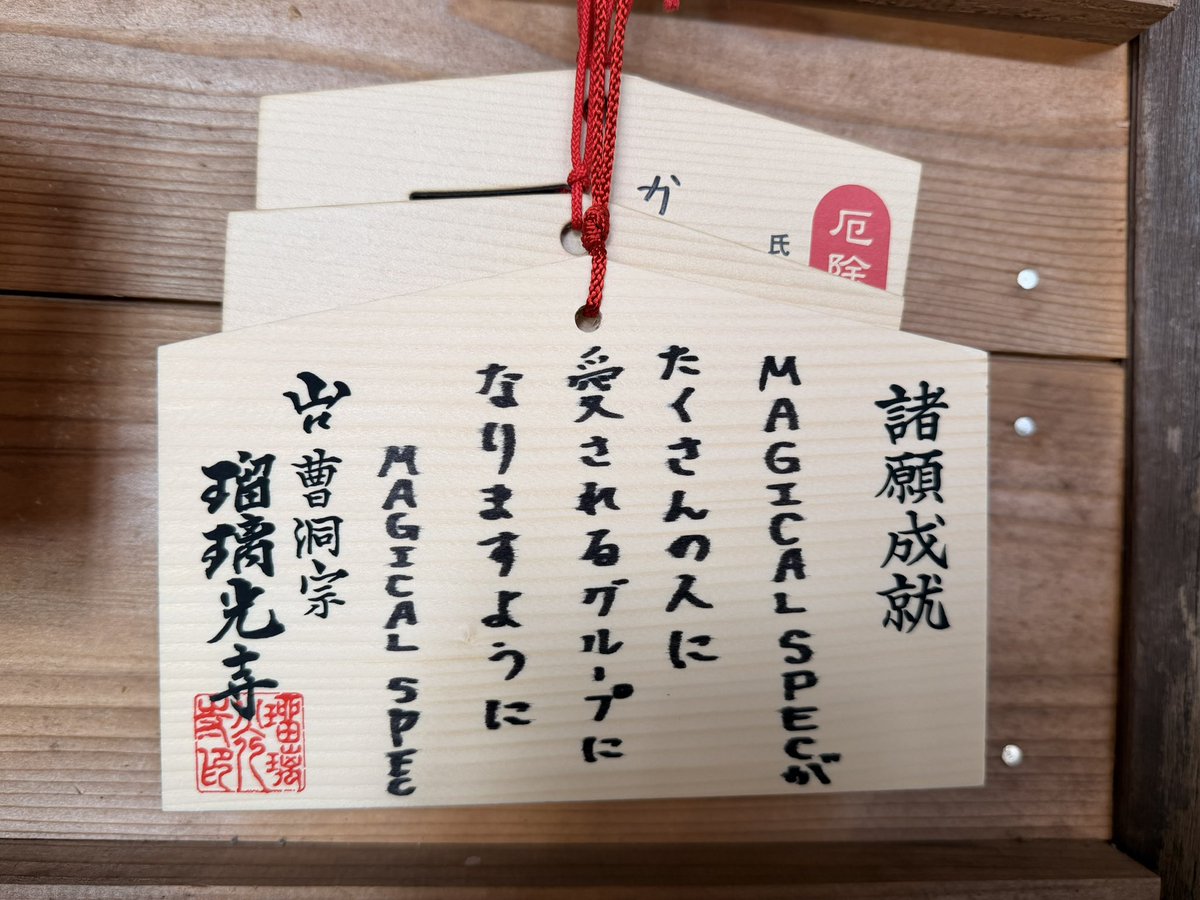 諸願成就
MAGICAL SPECが
たくさんの人に
愛されるグループに
なりますように
MAGICAL SPE
曹洞宗
瑠璃光寺
瑠璃
光
寺印
か
氏
厄除